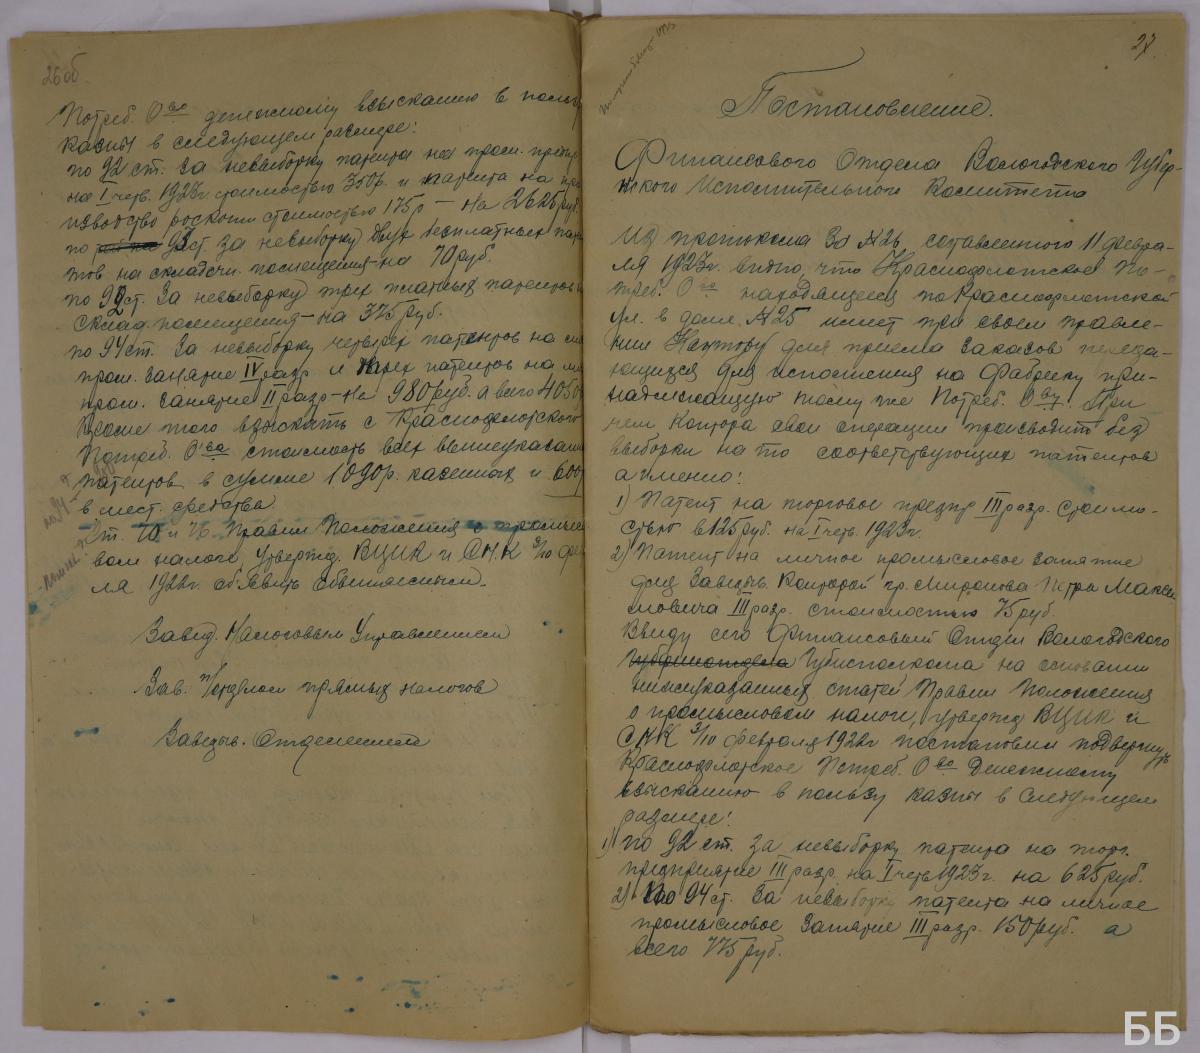 26об
Потреб. О-во денежному взысканию в пользу
казны в следующем размере:
по 92 ст. за невыборку патента на пром. предпр
на I четв. 1923г. стоимостью 350р. и патента на про
изводство роскоши стоимостью 175р — на 2625 руб.
по 93 ст. за невыборку двух бесплатных патен
тов на складочн. помещения — на 70 руб.
по 92 ст. за невыборку трех платных патентов на
склад. помещения — на 375 руб.
по 94 ст. за невыборку четырех патентов на
пром. занятие IV разр и трех патентов на
пром. занятие II разр — на 980 руб. а всего 4050
Кроме того взыскать с Краснофлотского
Потреб. О-ва стоимость всех вышеуказан
патентов в сумме 1090р. казенных и 600р
в мест. средства.
Ст. 70 и 76 Правил Положения о промысло
вом налоге утвержд. ВЦИК и СНК 3/10 фев
ля 1922г. объявить обвиняемым.
Завед. Налоговым Управлением
Зав. П/отделом прямых налогов
Заведыв. Отделением
27.
Постановление.
Финансового Отдела Вологодского Губер-
нского Исполнительного Комитета
Из протокола за №26, составленного 11 февра-
ля 1923г. видно, что Краснофлотское По-
треб. О-во находящееся по Краснофлотской
ул. в доме №25 имеет при своем правле-
нии Контору для приема заказов переда-
ющихся для исполнения на Фабрику при-
надлежащую тому же Потреб. О-ву. При
чем Контора свои операции производит без
выборки на то соответствующих патентов
а именно:
1) Патент на торговое предпр III разр. стоимо-
стью в 125 руб. на I четв. 1923г.
2) Патент на личное промысловое занятие
для Заведыв. Конторой гр. Миронова Петра Макси
мовича III разр. стоимостью 75 руб
Ввиду сего Финансовый Отдел Вологодского
Губфинотдела Губисполкома на основании
нижеуказанных статей Правил Положения
о промысловом налоге, утвержд ВЦИК и
СНК 3/10 февраля 1922г постановил подвергнуть
Краснофлотское Потреб. О-во денежному
взысканию в пользу казны в следующем
размере:
1) по 92 ст. за невыборку патента на торг.
предприятие III разр. на I четв 1923г. на 625 руб.
2) По 94 ст. за невыборку патента на личное
промысловое занятие III разр. 150 руб. а
всего 775 руб.
ББ